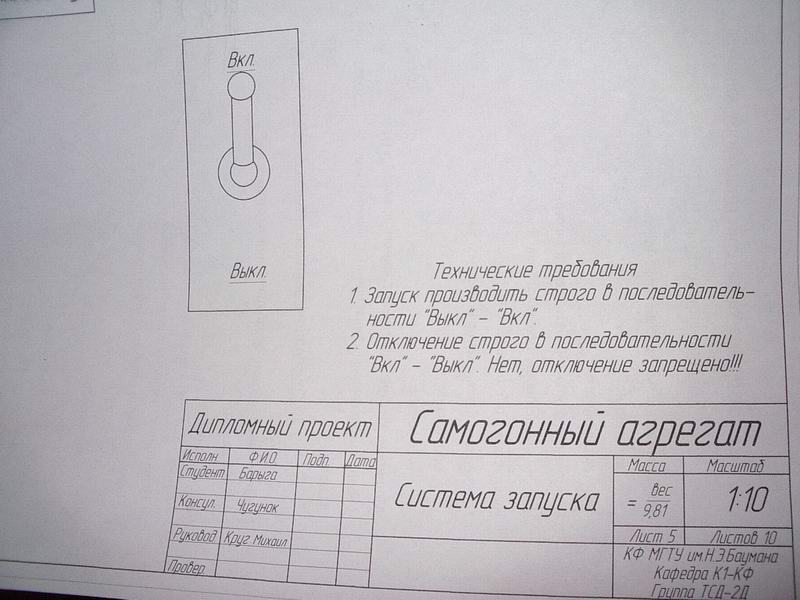 Вкл.
Выкл.
Технические требования
1. Запуск производить строго в последователь-
ности "Выкл" - "Вкл".
2. Отключение строго в последовательности
"Вкл" - "Выкл". Нет, отключение запрещено!!!
Дипломный проект
Самогонный агрегат
Исполн. Ф.И.О Подп. Дата
Студент Барыга
Консул. Чугунок
Руковод. Круг Михаил
Провер.
Система запуска
Масса Масштаб
= вес
9,81
1:10
Лист 5 Листов 10
КФ МГТУ им.Н.Э.Баумана
Кафедра К1-КФ
Группа ТСД-2Д